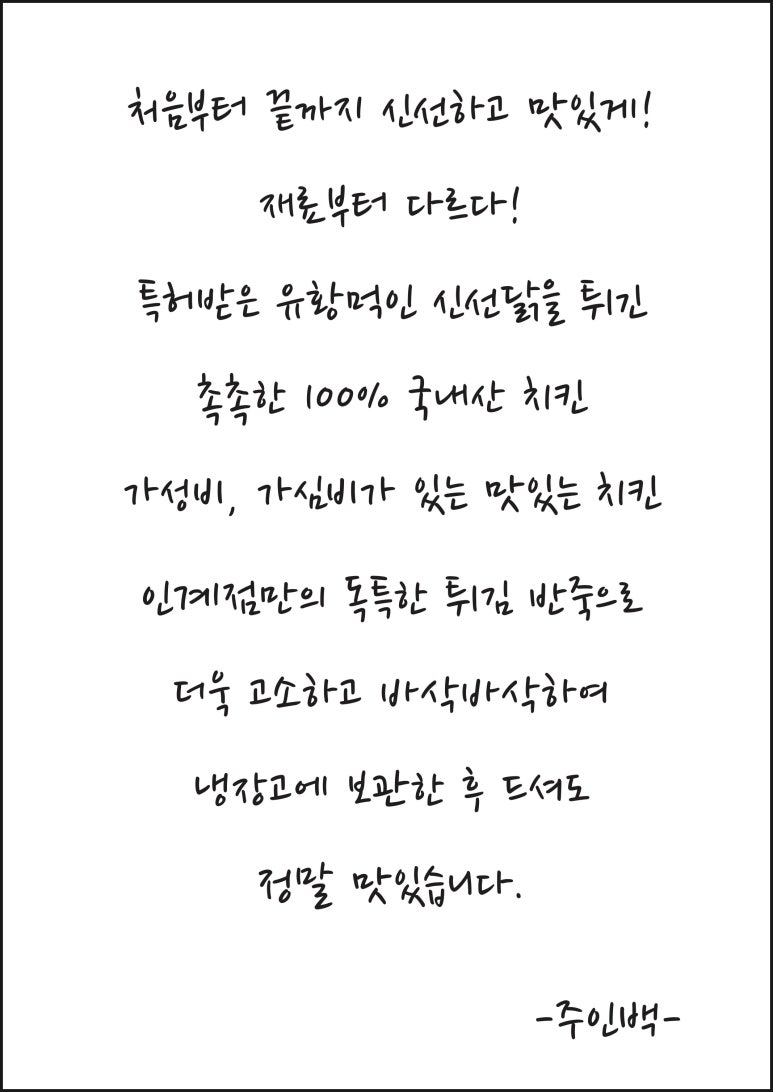 처음부터 끝까지 신선하고 맛있게!
재료부터 다르다!
특허받은 유황먹인 신선닭을 튀긴
촉촉한 100% 국내산 치킨
가성비, 가심비가 있는 맛있는 치킨
인계점만의 독특한 튀김 반죽으로
더욱 고소하고 바삭바삭하여
냉장고에 보관한 후 드셔도
정말 맛있습니다.
-주인백-